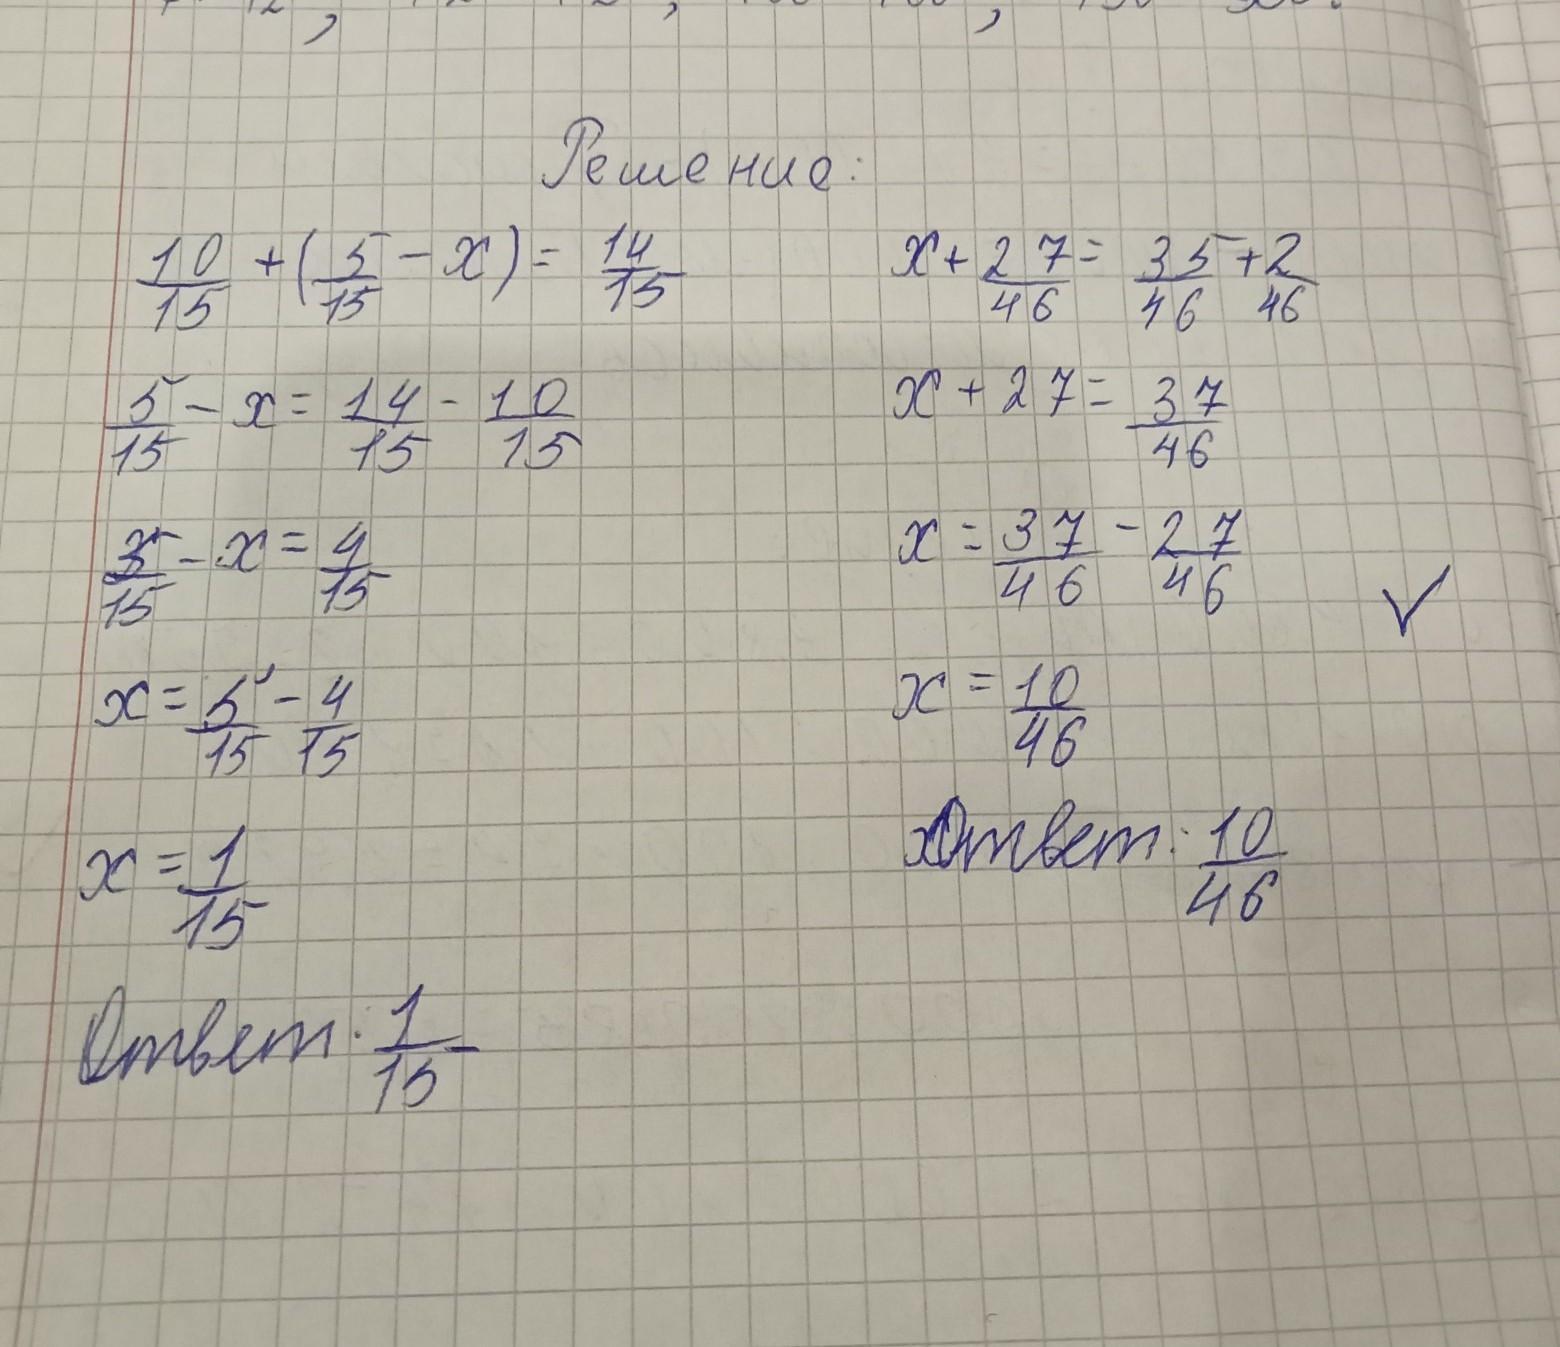 Решение:
10/15 + (5/15 - x) = 14/15
5/15 - x = 14/15 - 10/15
5/15 - x = 4/15
x = 5/15 - 4/15
x = 1/15
Ответ: 1/15
x + 27/46 = 35/46 + 2/46
x + 27 = 37/46
x = 37/46 - 27/46
x = 10/46
Ответ: 10/46